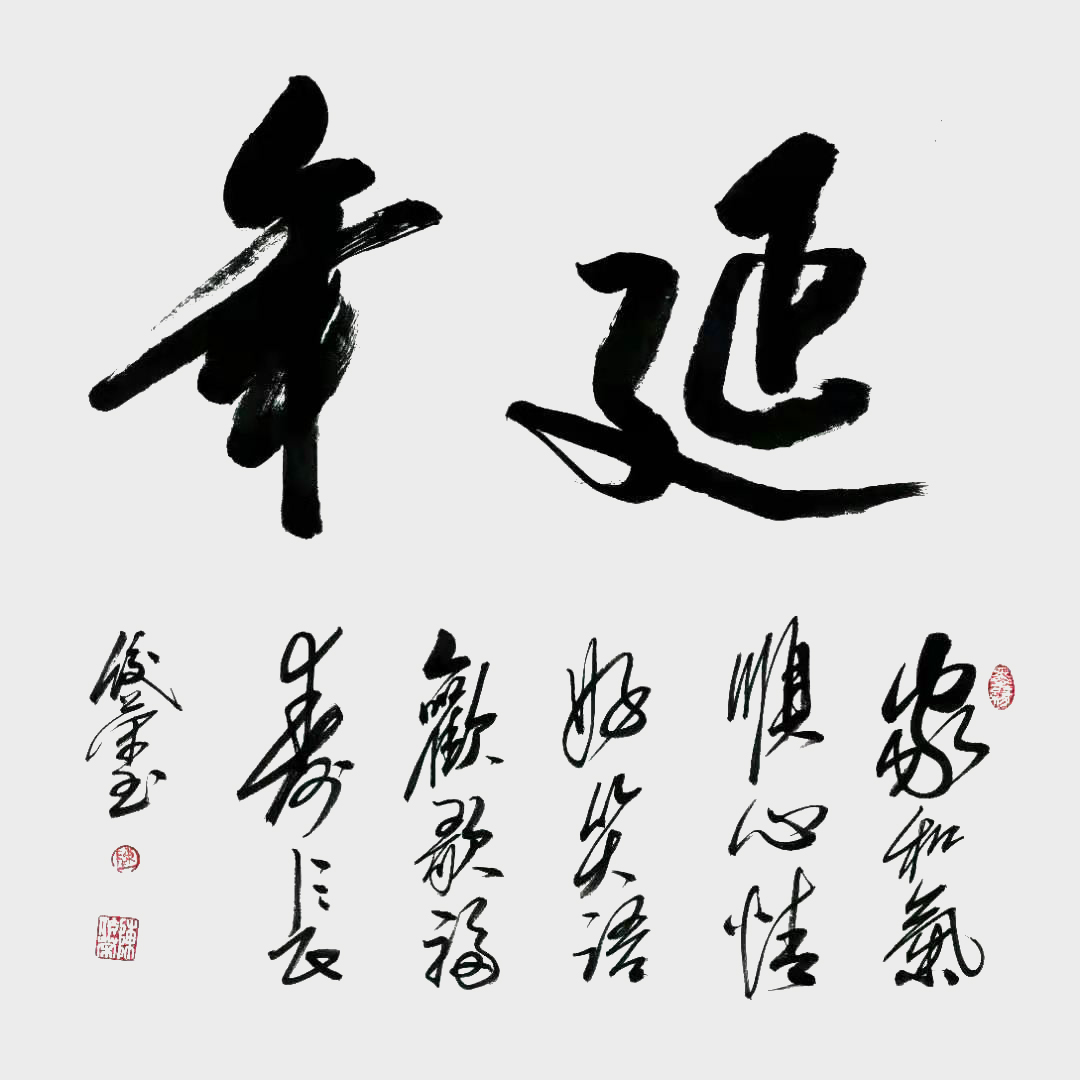 延年
家和氣
順心情
好笑語
歡歌福
壽長